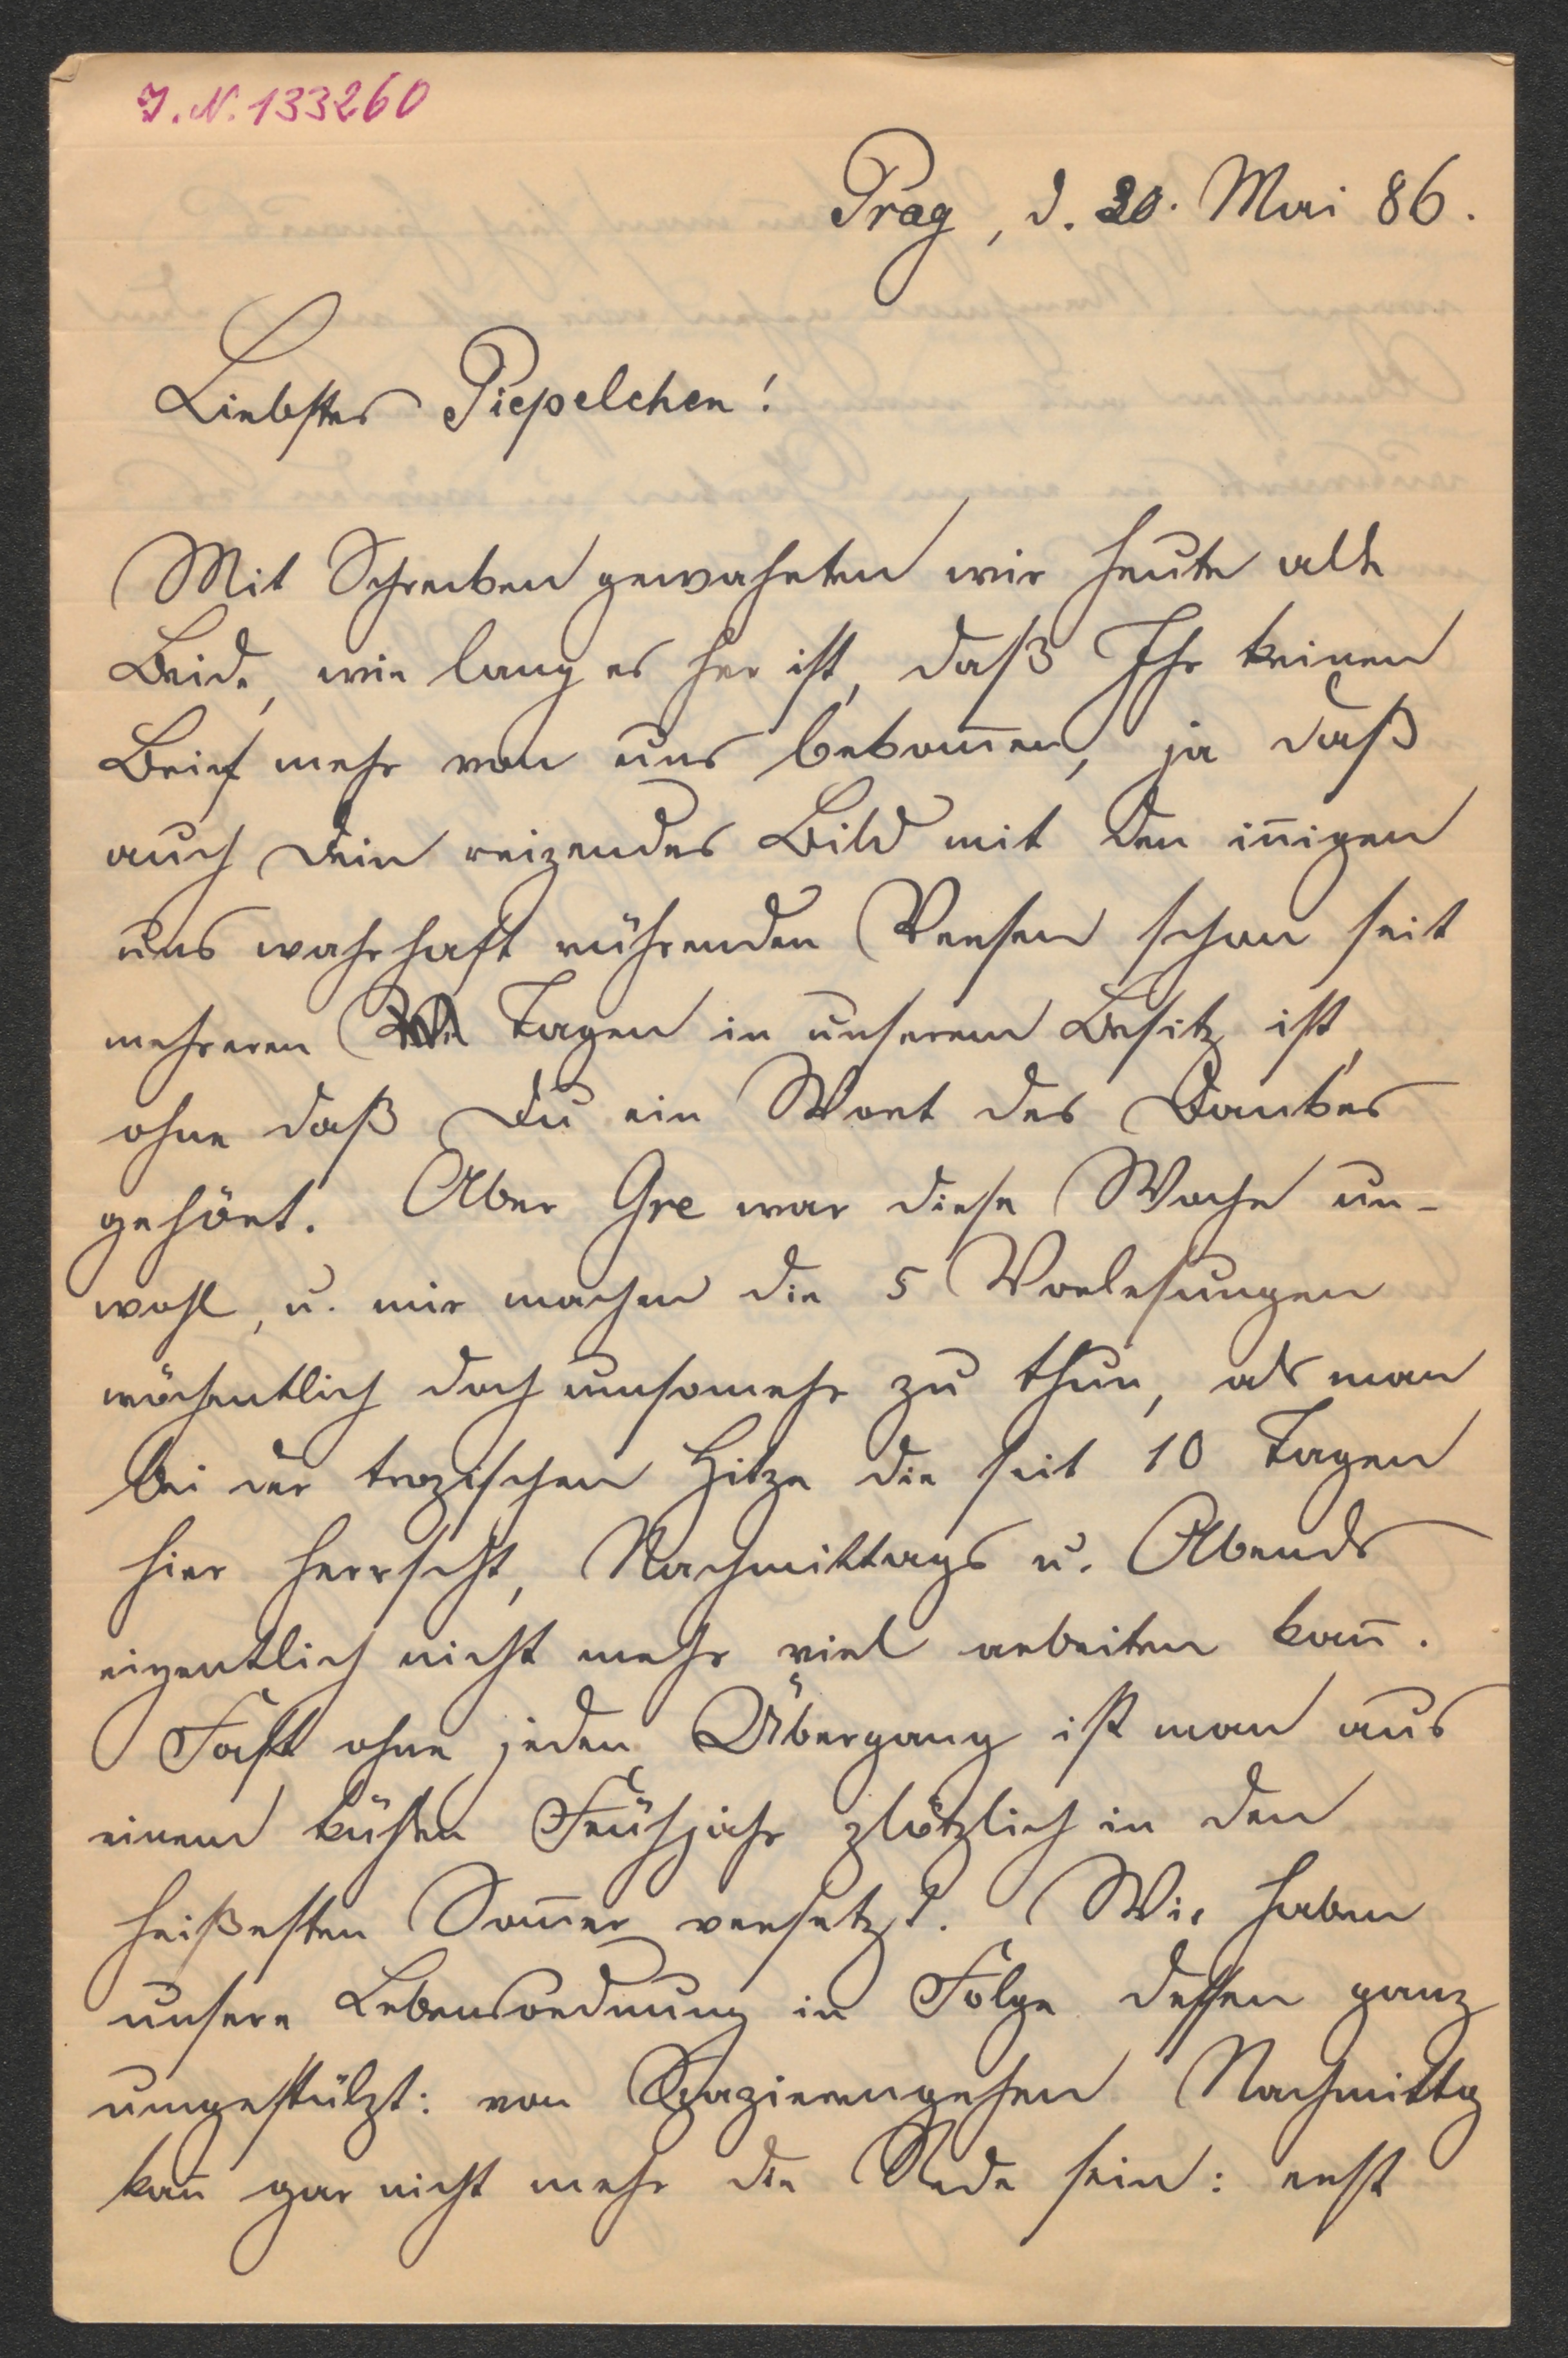 J. N. 133260
Prag, d. 30. Mai 86.
Liebstes Piepelchen!
Mit Schrecken gewahrten wir heute alle
Beide, wie lang es her ist, daß Ihr keinen
Brief mehr von uns bekom̄en, ja daß
auch Dein reizendes Bild mit den in̄igen
uns wahrhaft rührenden Versen schon seit
mehreren Tagen in unserem Besitz ist,
ohne daß Du ein Wort des Dankes
gehört. Aber Gre war diese Woche un-
wohl, u. mir machen die 5 Vorlesungen
wöchentlich doch umsomehr zu thun, als man
bei der tropischen Hitze die seit 10 Tagen
hier herrscht, Nachmittags u. Abends
eigentlich nicht mehr viel arbeiten kan̄.
Fast ohne jeden Übergang ist man aus
einem kühlen Frühjahr plötzlich in den
heißesten Som̄er versetzt. Wir haben
unsere Lebensordnung in Folge dessen ganz
umgestülpt: von Spazierengehen Nachmittg
kan̄ gar nicht mehr die Rede sein: erst